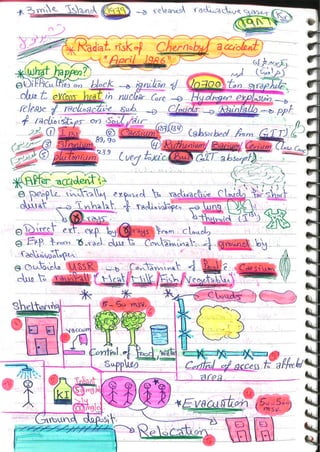 * 3 mile Island 1979 → released radioactive gases Kr
1987
* Radiat. risk of Chernobyl accident
"April 1986"
* What happen?
Difficulties on block → ignition of 1700 ton graphite
due to excess heat in nuclear core → Hydrogen explosion →
release of radioactive sub. → Clouds → Rainfalls → ppt.
of radioisotops on soil / air
① I 131 ② Caesium 137/134 (absorbed from GIT)
③ Strontium 89, 90 ④ Ruthenium Barium Cerium
⑤ plutonium 239 (very toxic But GIT absorpt)
* After accident:
people initially exposed to radioactive Clouds for short
durat. → Inhalat. of radioisotopes → lung
→ thyroid (I 131)
γ rays
Direct ext. exp by γ rays from clouds
Exp from γ rad due to Contaminat. of ground by
radioisotopes
Outside USSR → Contaminat. of Caesium
due to rainfall (Meat / Milk / Fish / Vegetables)
Clouds
Sheltering
5-50 msv.
vaccum
Control of Food / Water
Supplies
Control of access to affected
area.
KI
Adult
single
* Evacuation
50-500
msv.
Ground deposit
Relocation